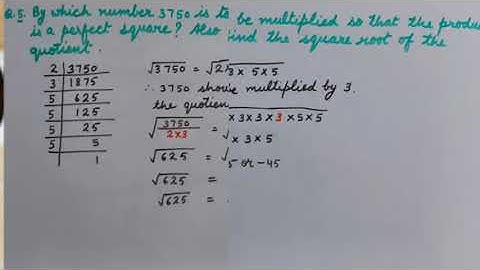 Q.5. By which number 3750 is to be multiplied so that the produ
is a perfect square? Also find the square root of the
quotient.
2 | 3750
3 | 1875
5 | 625
5 | 125
5 | 25
5 | 5
1
√3750 = √2 3 × 5 × 5
∴ 3750 multiplied by 3.
the quotien
√3750/2×3 = × 3 × 3 × 3 × 5 × 5
× 3 × 5
√625 = √5 or - 45
√625 =
√625 =